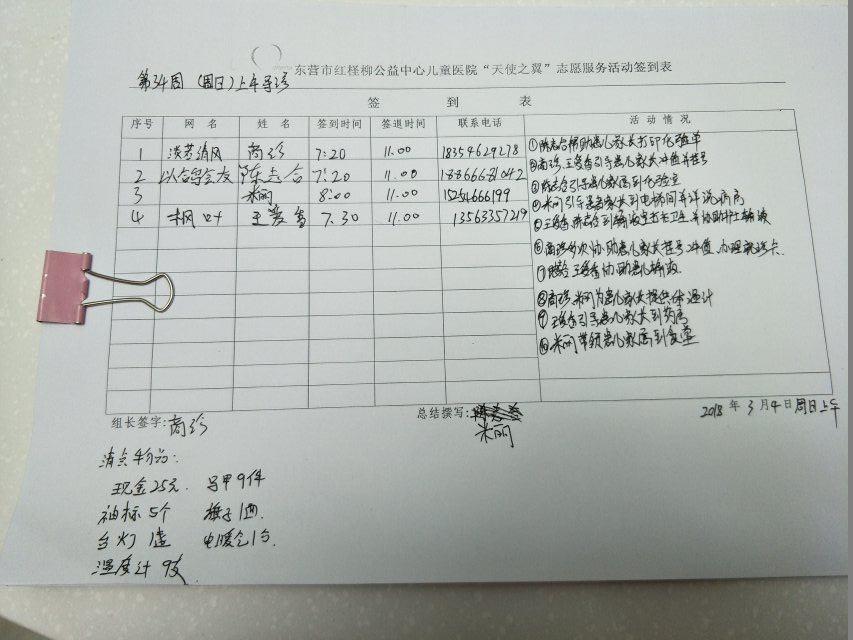 东营市红柽柳公益中心儿童医院“天使之翼”志愿服务活动签到表
第34周 (周日)上午导诊
签到表
序号 网名 姓名 签到时间 签退时间 联系电话 活动情况
1 淡若清风 商珍 7:20 11.00 18354629278
2 以合学会友 陈志合 7:20 11.00 18866681042
3 米丽 8:00 11.00 15254666199
4 枫叶 王爱香 7.30 11.00 13563357219
①陈志合帮助患儿家长打印化验单
②商珍、王爱香引导患儿家长冲值并挂号
③陈志合引导患儿家属到化验室
④米丽引导患者家长到电梯间并详说病房
⑤王爱香 陈志合到输液室打扫卫生并协助护士输液
⑥商珍多次协助患儿家长挂号冲值,办理就诊卡.
⑦王爱香协助患儿输液.
⑧商珍 米丽为患儿家长提供体温计
⑨王爱香引导患儿家长到药房
⑩米丽带领患儿家属到食堂
组长签字: 商珍
总结撰写: 米丽
2018年3月4日周日上午
清点物品:
现金25元. 马甲9件
袖标5个 旗子1面.
台灯1盏 电暖气1台.
温度计9支